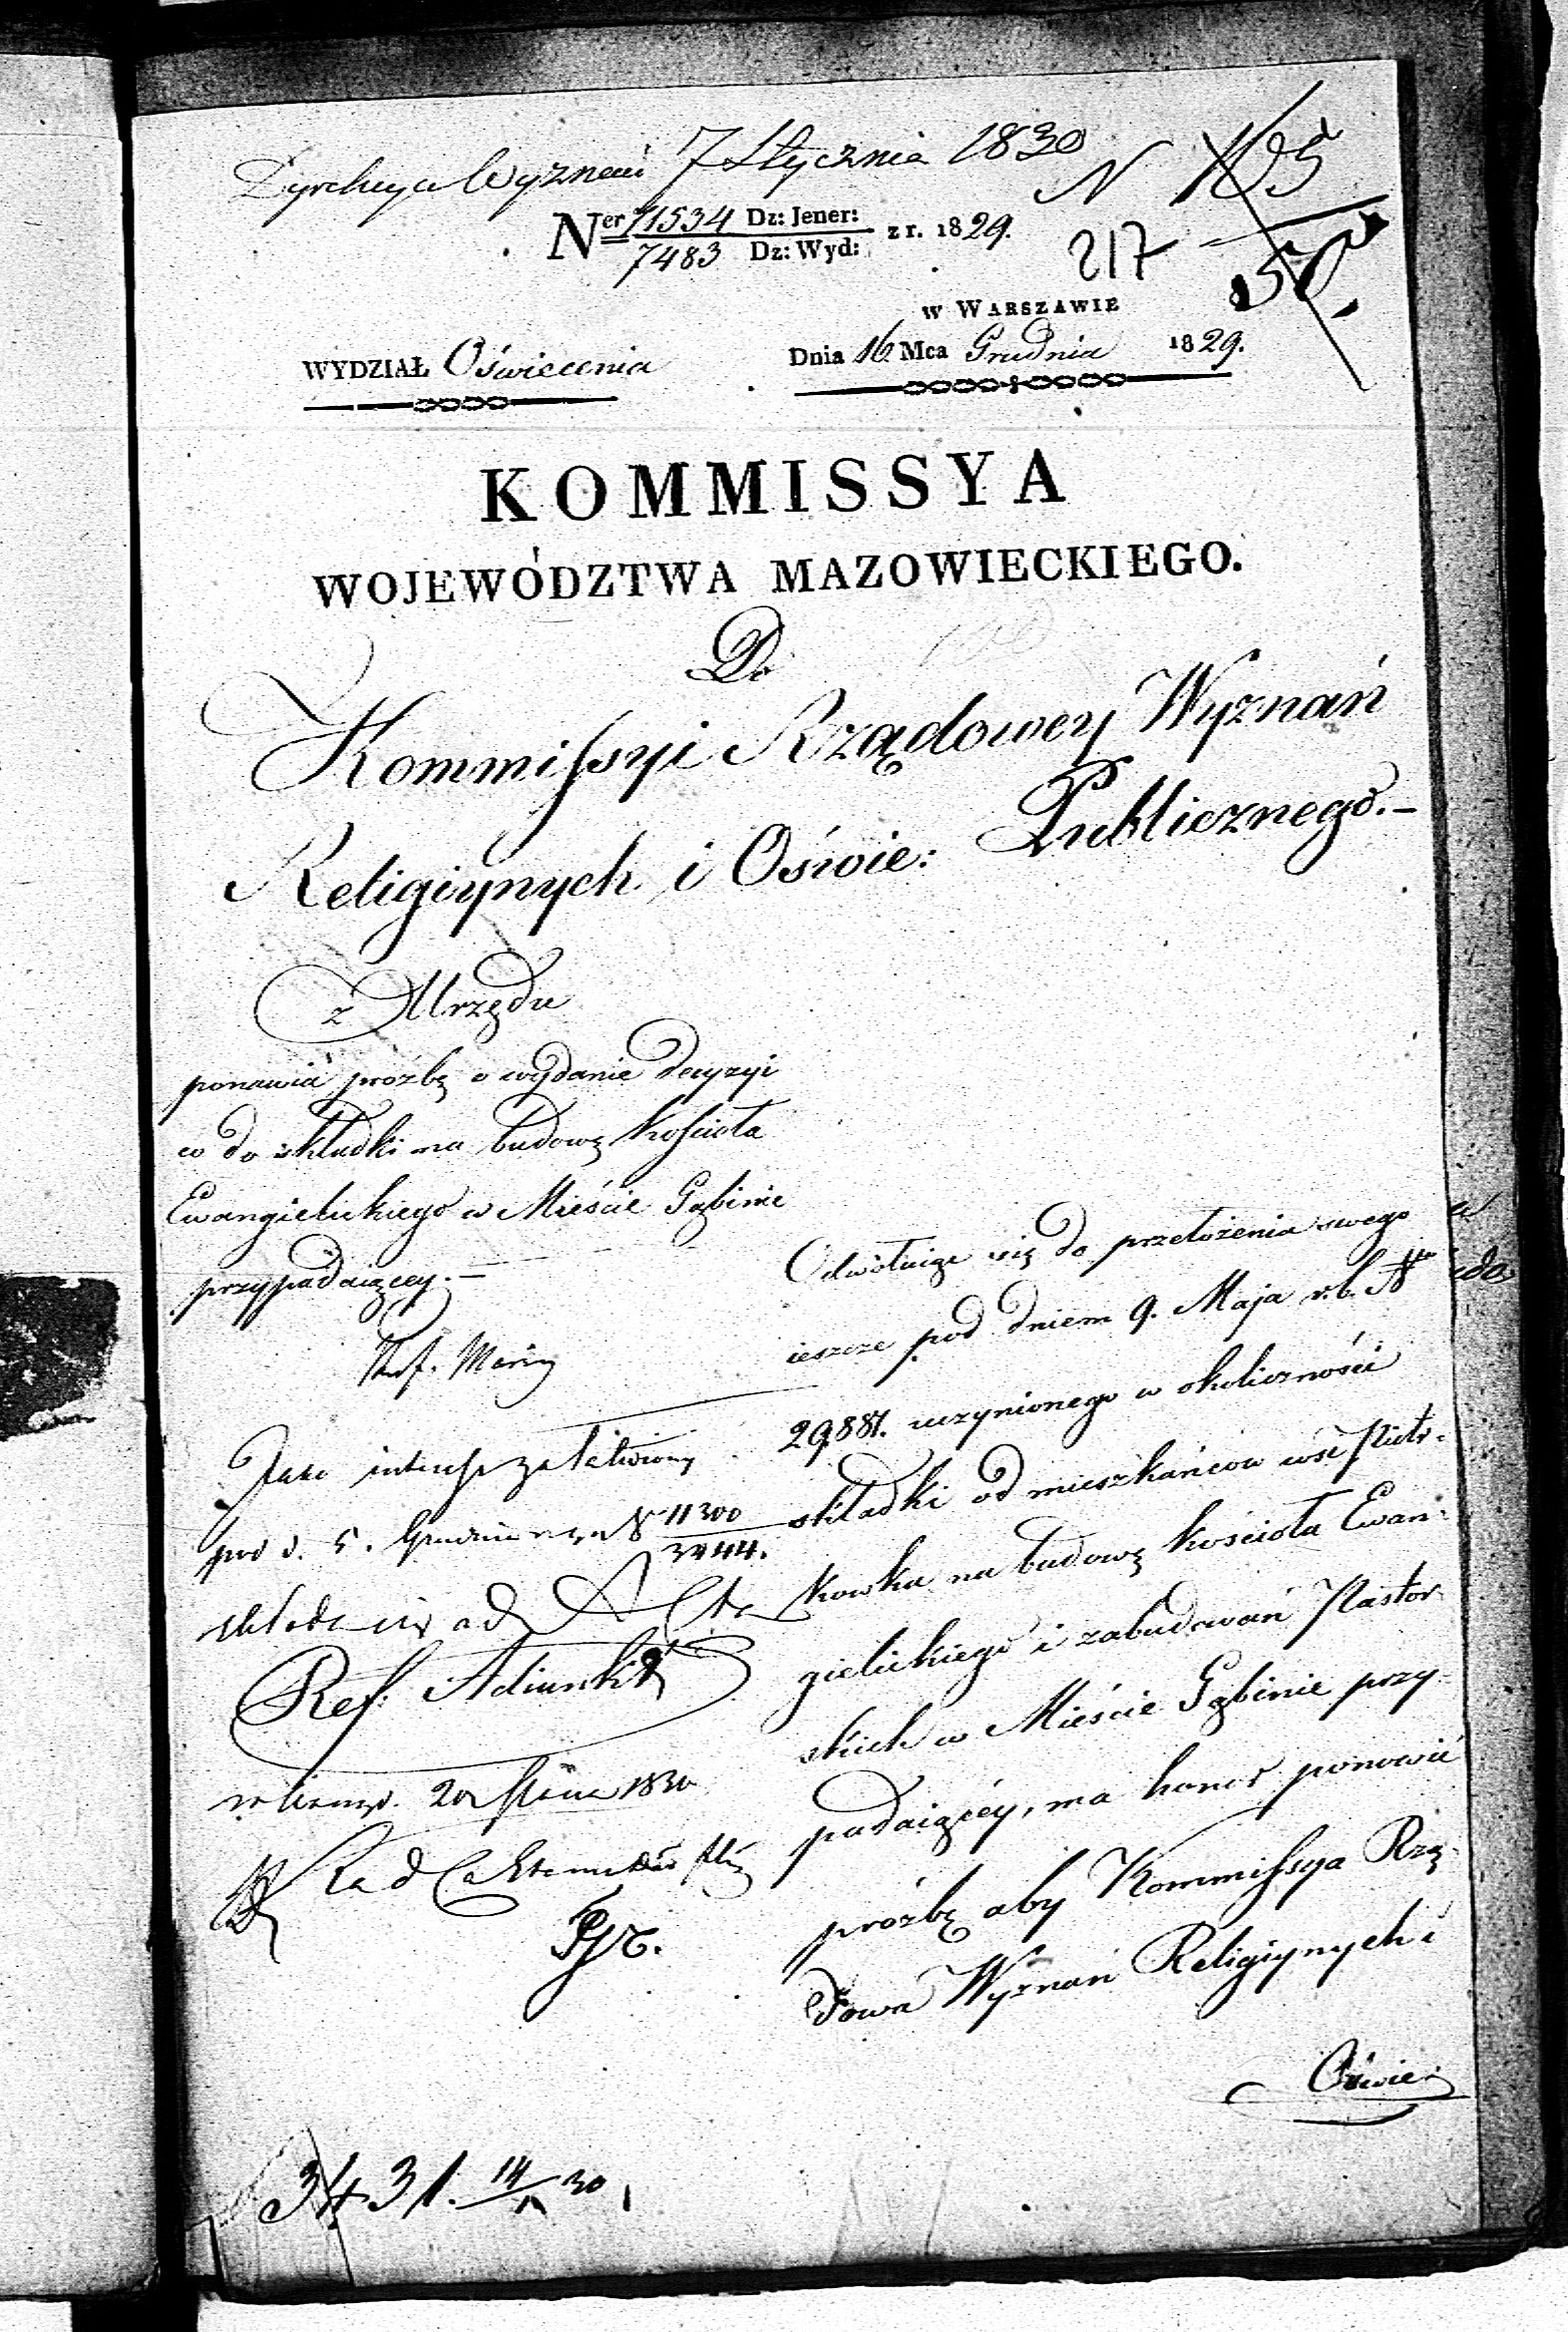 Dyrekcya Wyznań 7 Stycznia 1830
N 105
Ner 71534 Dz: Jener: z r. 1829.
7483 Dz: Wyd:
217
w Warszawie
WYDZIAŁ Oświecenia
Dnia 16 Mca Grudnia 1829.
KOMMISSYA
WOJEWÓDZTWA MAZOWIECKIEGO.
Do
Kommissyi Rządowey Wyznań
Religiynych i Oświe: Publicznego.–
z Urzędu
ponawia prozbę o wydanie decyzyi
co do składki na budowę kościoła
Ewangielickiego w Mieście Gąbinie
przypadaiącey.–
Odwołuiąc się do przełożenia swego
ieszcze pod dniem 9. Maja r. b. Nr
29881. uczynionego w okoliczności
składki od mieszkańców wsi Piotr-
kowka na budowę kościoła Ewan-
gielickiego i zabudowań Pastor-
skich w Mieście Gąbinie przy-
padaiącéy, ma honor ponowić
prozbę aby Kommissya Rzą-
dowa Wyznań Religiynych i
Oświe:
Jako interes załatwiony
pod d. 5. Grudnia N 11300
3444.
składa się ad Acta
Ref: Adiunkt
20 1830
3431. 14/1 30